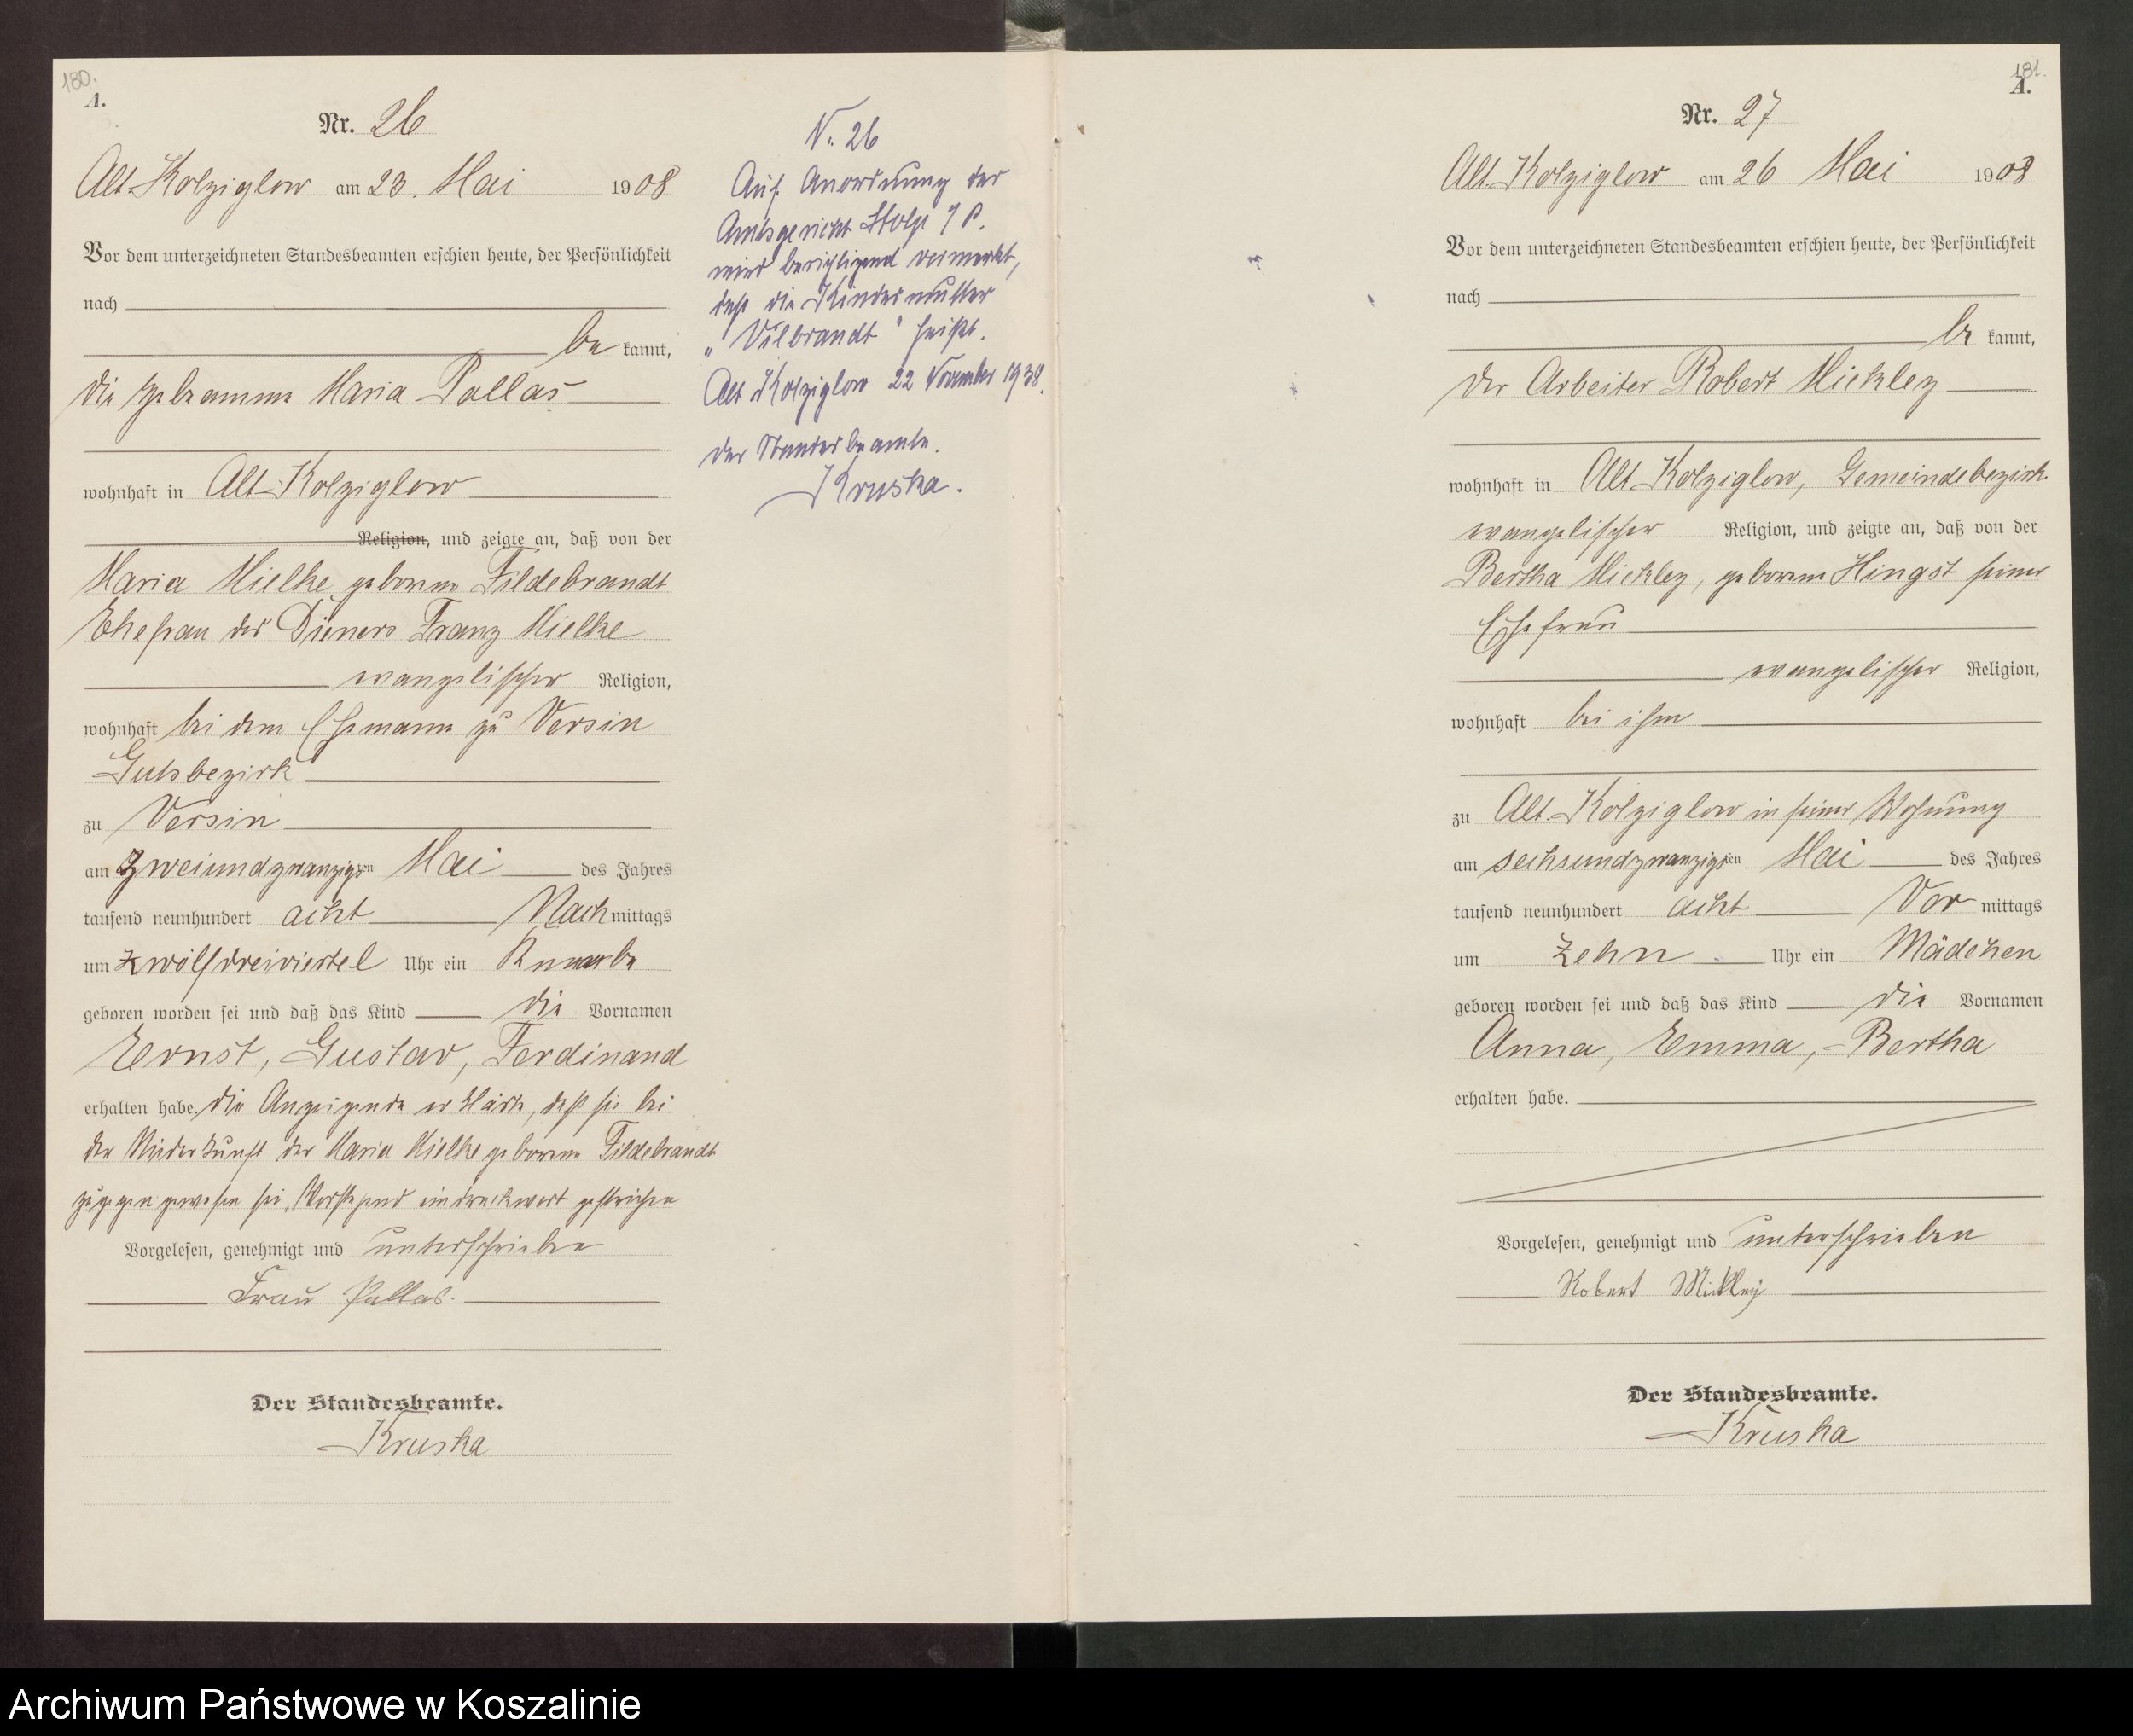 180.
A.
Nr. 26
Alt-Kolziglow am 23. Mai 1908
Vor dem unterzeichneten Standesbeamten erschien heute, der Persönlichkeit
nach
be kannt,
die Hebeamme Maria Pallas
wohnhaft in Alt-Kolziglow
Religion, und zeigte an, daß von der
Maria Mielke geborene Fildebrandt
Ehefrau des Dieners Franz Mielke
evangelischer Religion,
wohnhaft bei dem Ehemann zu Versin
Gutsbezirk
zu Versin
am zweiundzwanzigsten Mai des Jahres
tausend neunhundert acht Nachmittags
um zwölfdreiviertel Uhr ein Knabe
geboren worden sei und daß das Kind die Vornamen
Ernst, Gustav, Ferdinand
erhalten habe. die Anzeigende erklärte, daß sie bei
der Niederkunft der Maria Mielke geborene Fildebrandt
zugegen gewesen sei. Vorstehend ein druckwort gestrichen
Vorgelesen, genehmigt und unterschrieben
Frau Pallas.
Der Standesbeamte.
Kruska
N. 26
Auf Anordnung der
Amtsgericht Stolp / P.
wird berichtigend vermerkt,
daß die Kindesmutter
„Vilbrandt" heißt.
Alt Kolziglow 22 November 1938.
der Standesbeamte.
Kruska.
181.
A.
Nr. 27
Alt-Kolziglow am 26 Mai 1908
Vor dem unterzeichneten Standesbeamten erschien heute, der Persönlichkeit
nach
be kannt,
der Arbeiter Robert Mickley
wohnhaft in Alt-Kolziglow, Gemeindebezirk
evangelischer Religion, und zeigte an, daß von der
Bertha Mickley, geborene Hingst seiner
Ehefrau
evangelischer Religion,
wohnhaft bei ihm
zu Alt-Kolziglow in seiner Wohnung
am sechsundzwanzigsten Mai des Jahres
tausend neunhundert acht Vor mittags
um zehn Uhr ein Mädchen
geboren worden sei und daß das Kind die Vornamen
Anna, Emma, Bertha
erhalten habe.
Vorgelesen, genehmigt und unterschrieben
Robert Mickley
Der Standesbeamte.
Kruska
Archiwum Państwowe w Koszalinie